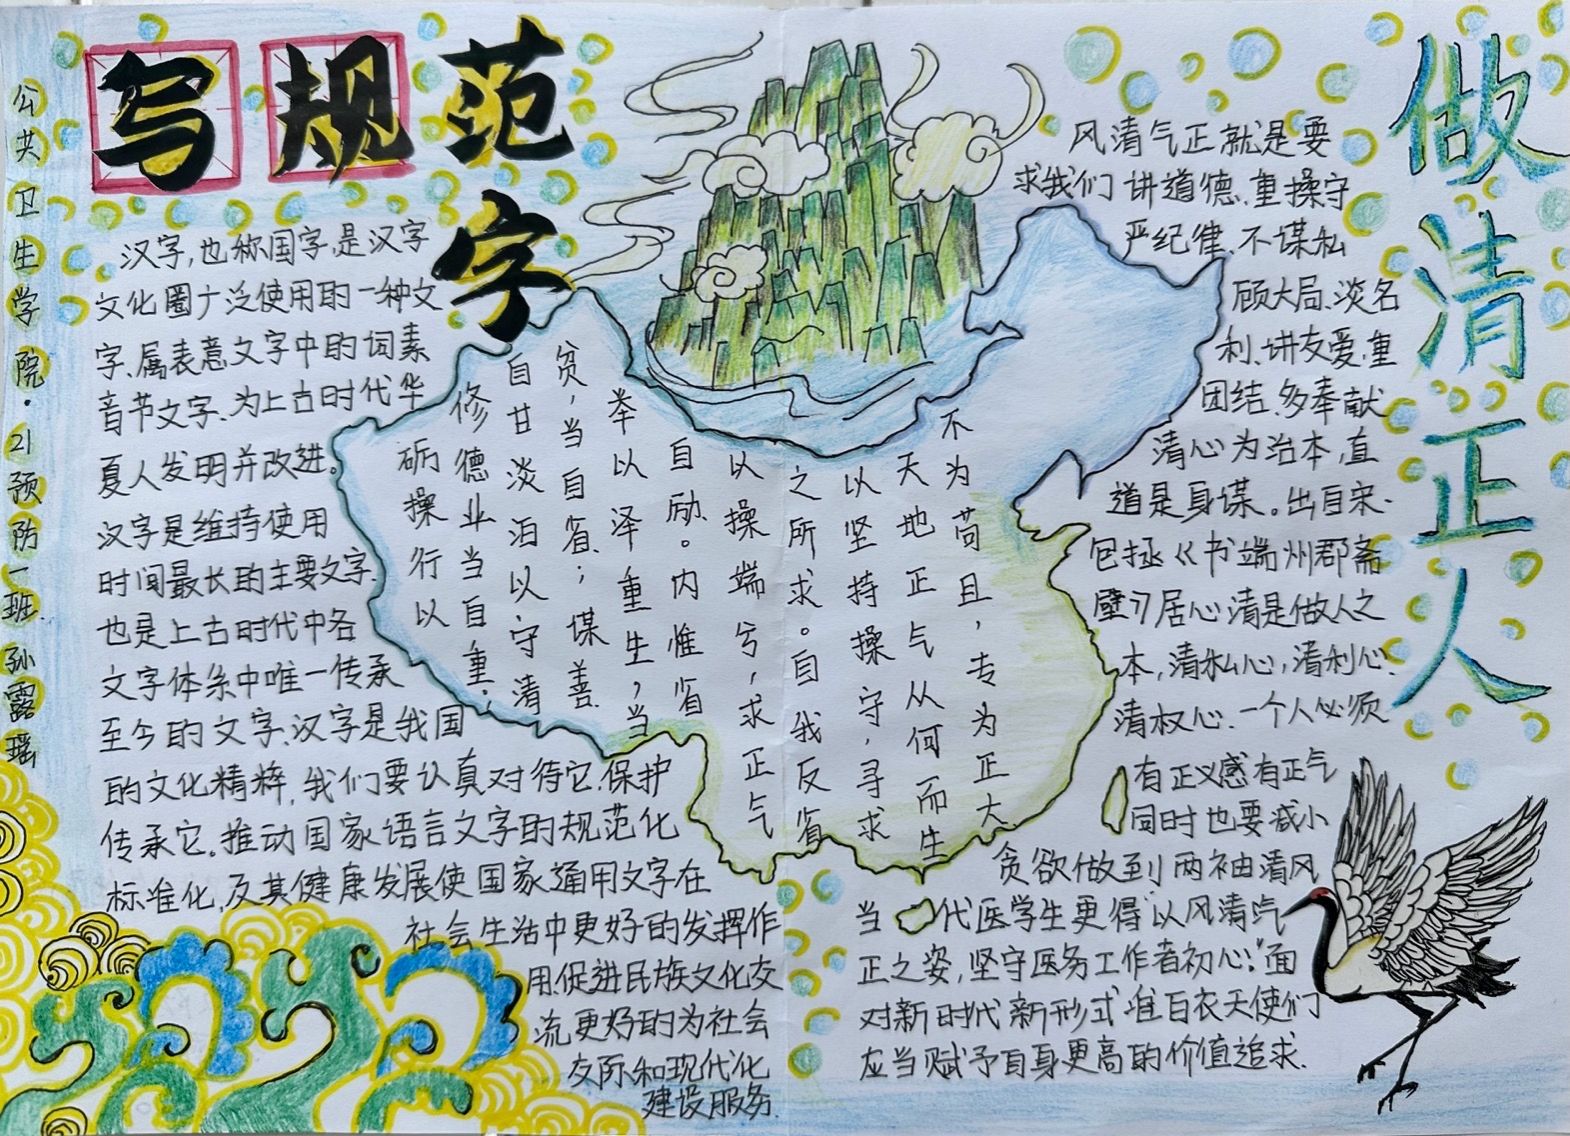 写规范字
做清正人
公共卫生学院·21预防一班 孙露瑶
汉字,也称国字,是汉字
文化圈广泛使用的一种文
字、属表意文字中的词素
音节文字、为上古时代华
夏人发明并改进。
汉字是维持使用
时间最长的主要文字、
也是上古时代中各
文字体系中唯一传承
至今的文字、汉字是我国
的文化精粹,我们要认真对待它、保护
传承它。推动国家语言文字的规范化
标准化,及其健康发展使国家通用文字在
社会生活中更好的发挥作
用、促进民族文化交
流更好的为社会
友际和现代化
建设服务.
不为苟且,专为正大
天地正气从何而生
以坚持操守,寻求
之所求。自我反省
以操端兮,求正气
自励。内惟省
举以泽重生,当
贫,当自省、;谋善
自甘淡泊以守清
修德业当自重;
砺操行以
风清气正就是要
求我们讲道德、重操守
严纪律、不谋私
顾大局、淡名
利、讲友爱、重
团结、多奉献
清心为治本,直
道是身谋。出自宋·
包拯《书端州郡斋
壁》居心清是做人之
本,清私心,清利心、
清权心、一个人必须
有正义感有正气
同时也要减小
贪欲做到两袖清风
当代医学生更得以风清气
正之姿,坚守医务工作者初心:"面
对新时代新形式准白衣天使们
应当赋予自身更高的价值追求.